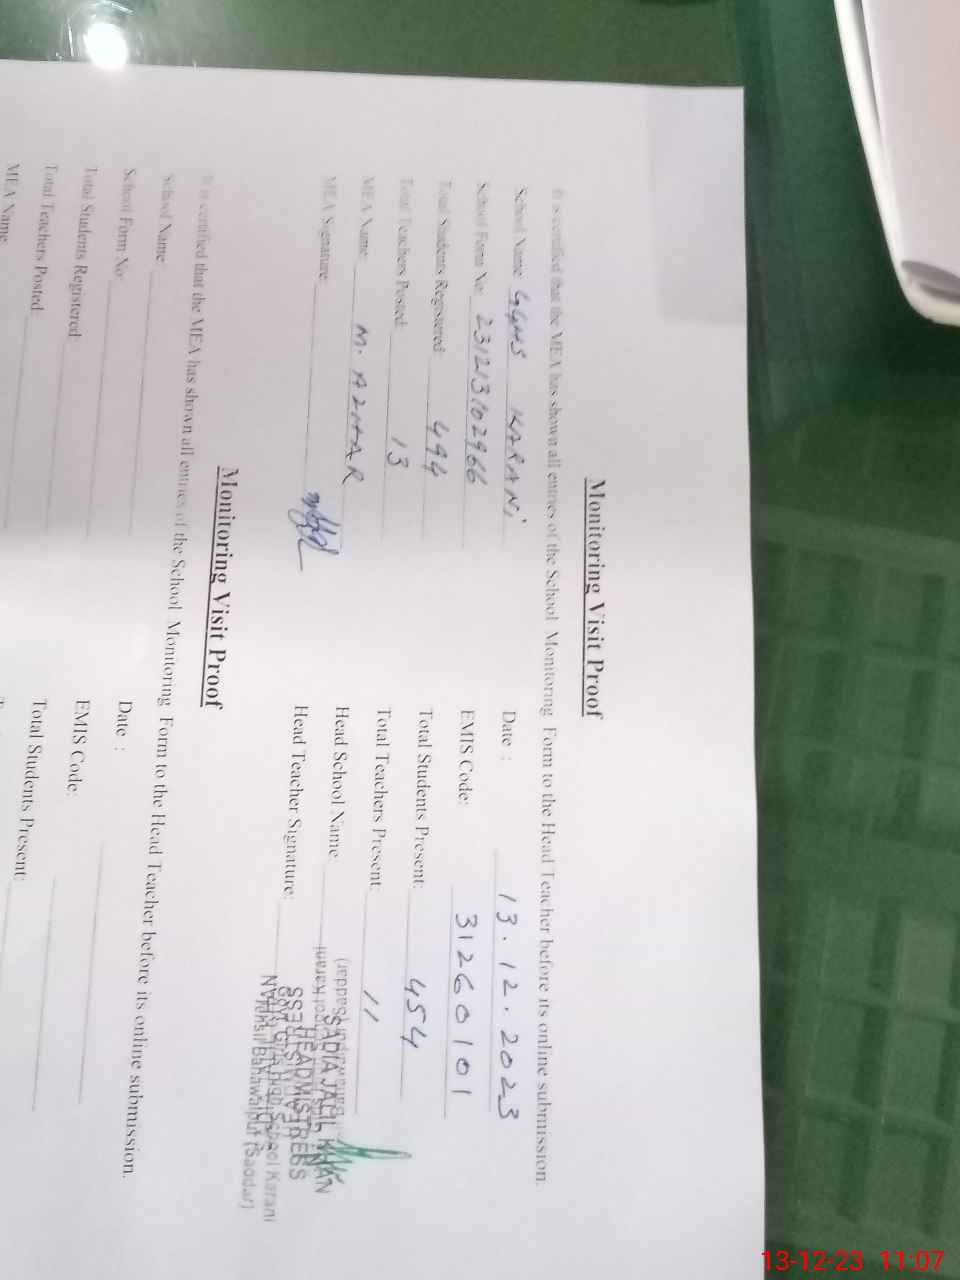 Monitoring Visit Proof
It is certified that the MEA has shown all entries of the School Monitoring Form to the Head Teacher before its online submission.
School Name: GGHS KARANI Date : 13.12.2023
School Form No: 231213102966 EMIS Code: 31260101
Total Students Registered: 494 Total Students Present: 454
Total Teachers Posted: 13 Total Teachers Present: 11
MEA Name: M. AZHAR Head School Name:
MEA Signature: Head Teacher Signature:
SADIA JALIL KHAN
HEADMISTRESS
Govt Girls High School Karani
Tehsil Bahawalpur (Saddar)
Monitoring Visit Proof
It is certified that the MEA has shown all entries of the School Monitoring Form to the Head Teacher before its online submission.
School Name: Date :
School Form No: EMIS Code:
Total Students Registered: Total Students Present:
Total Teachers Posted:
MEA Name:
13-12-23 11:07